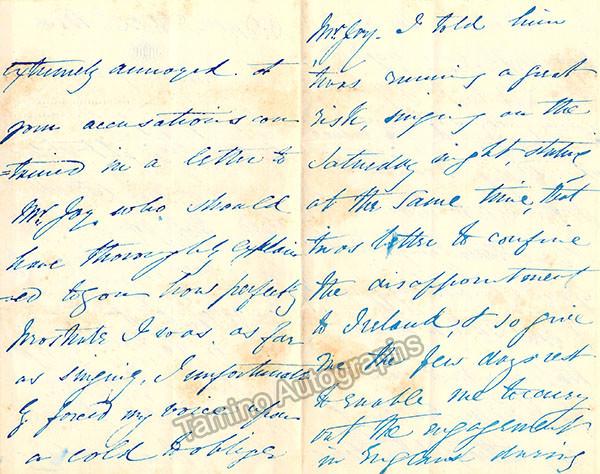 extremely annoyed at
your accusations con
=tained in a letter to
Mr. Joy, who should
have thoroughly explain
=ed to you how perfectly
prostrate I was as far
as singing, I unfortunate
ly forced my voice upon
a cold to oblige
Mr. Joy. I told him
'twas running a great
risk, singing on the
Saturday night, stating
at the same time, that
'twas better to confine
the disappointment
to Ireland, & so give
me the few days rest
to enable me to carry
out the engagement
in England during
Tamino Autographs